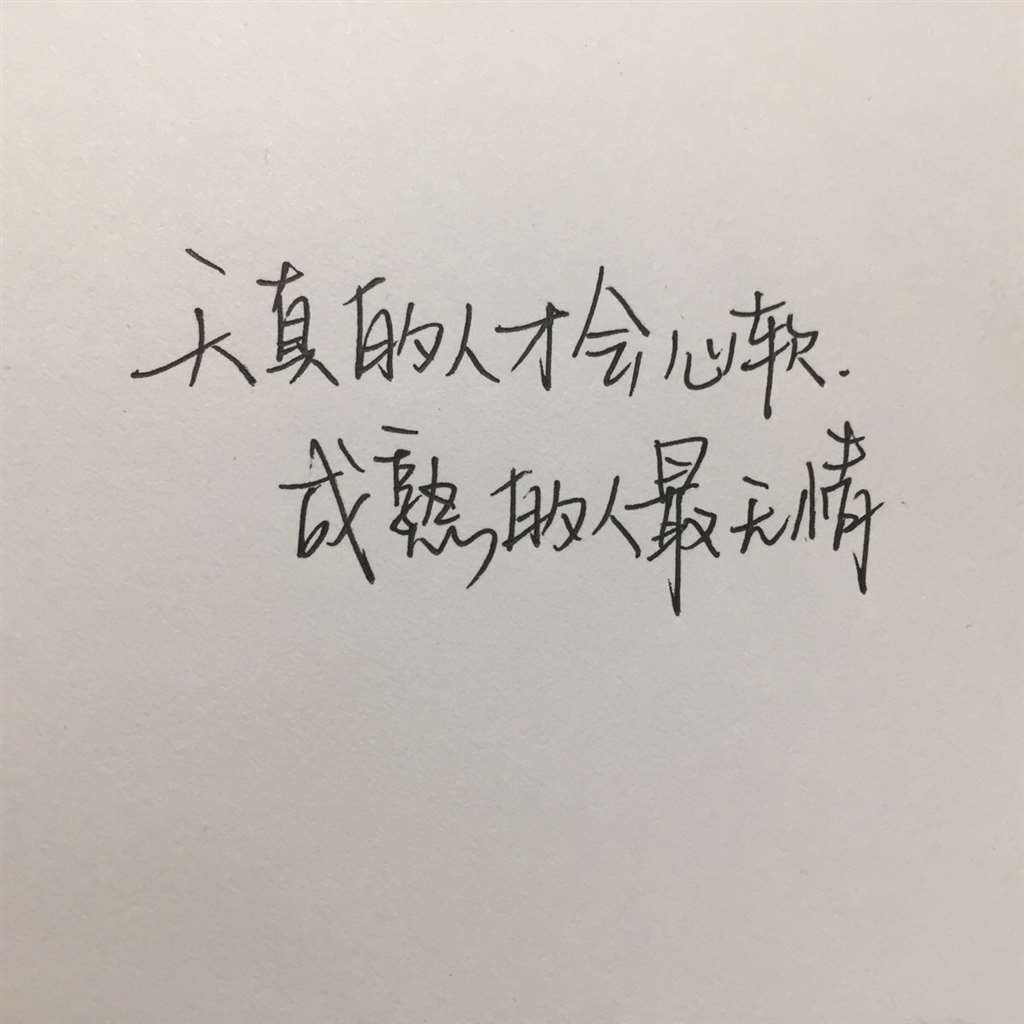 天真的人才会心软.
成熟的人最无情